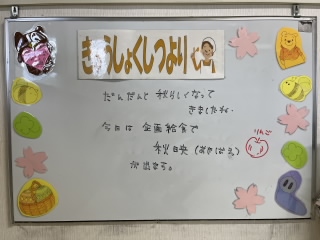 きゅうしょくしつより
だんだんと 秋らしくなって
きましたね.
今日は 企画給食で
りんご
秋映(あきばえ)
が出ます。